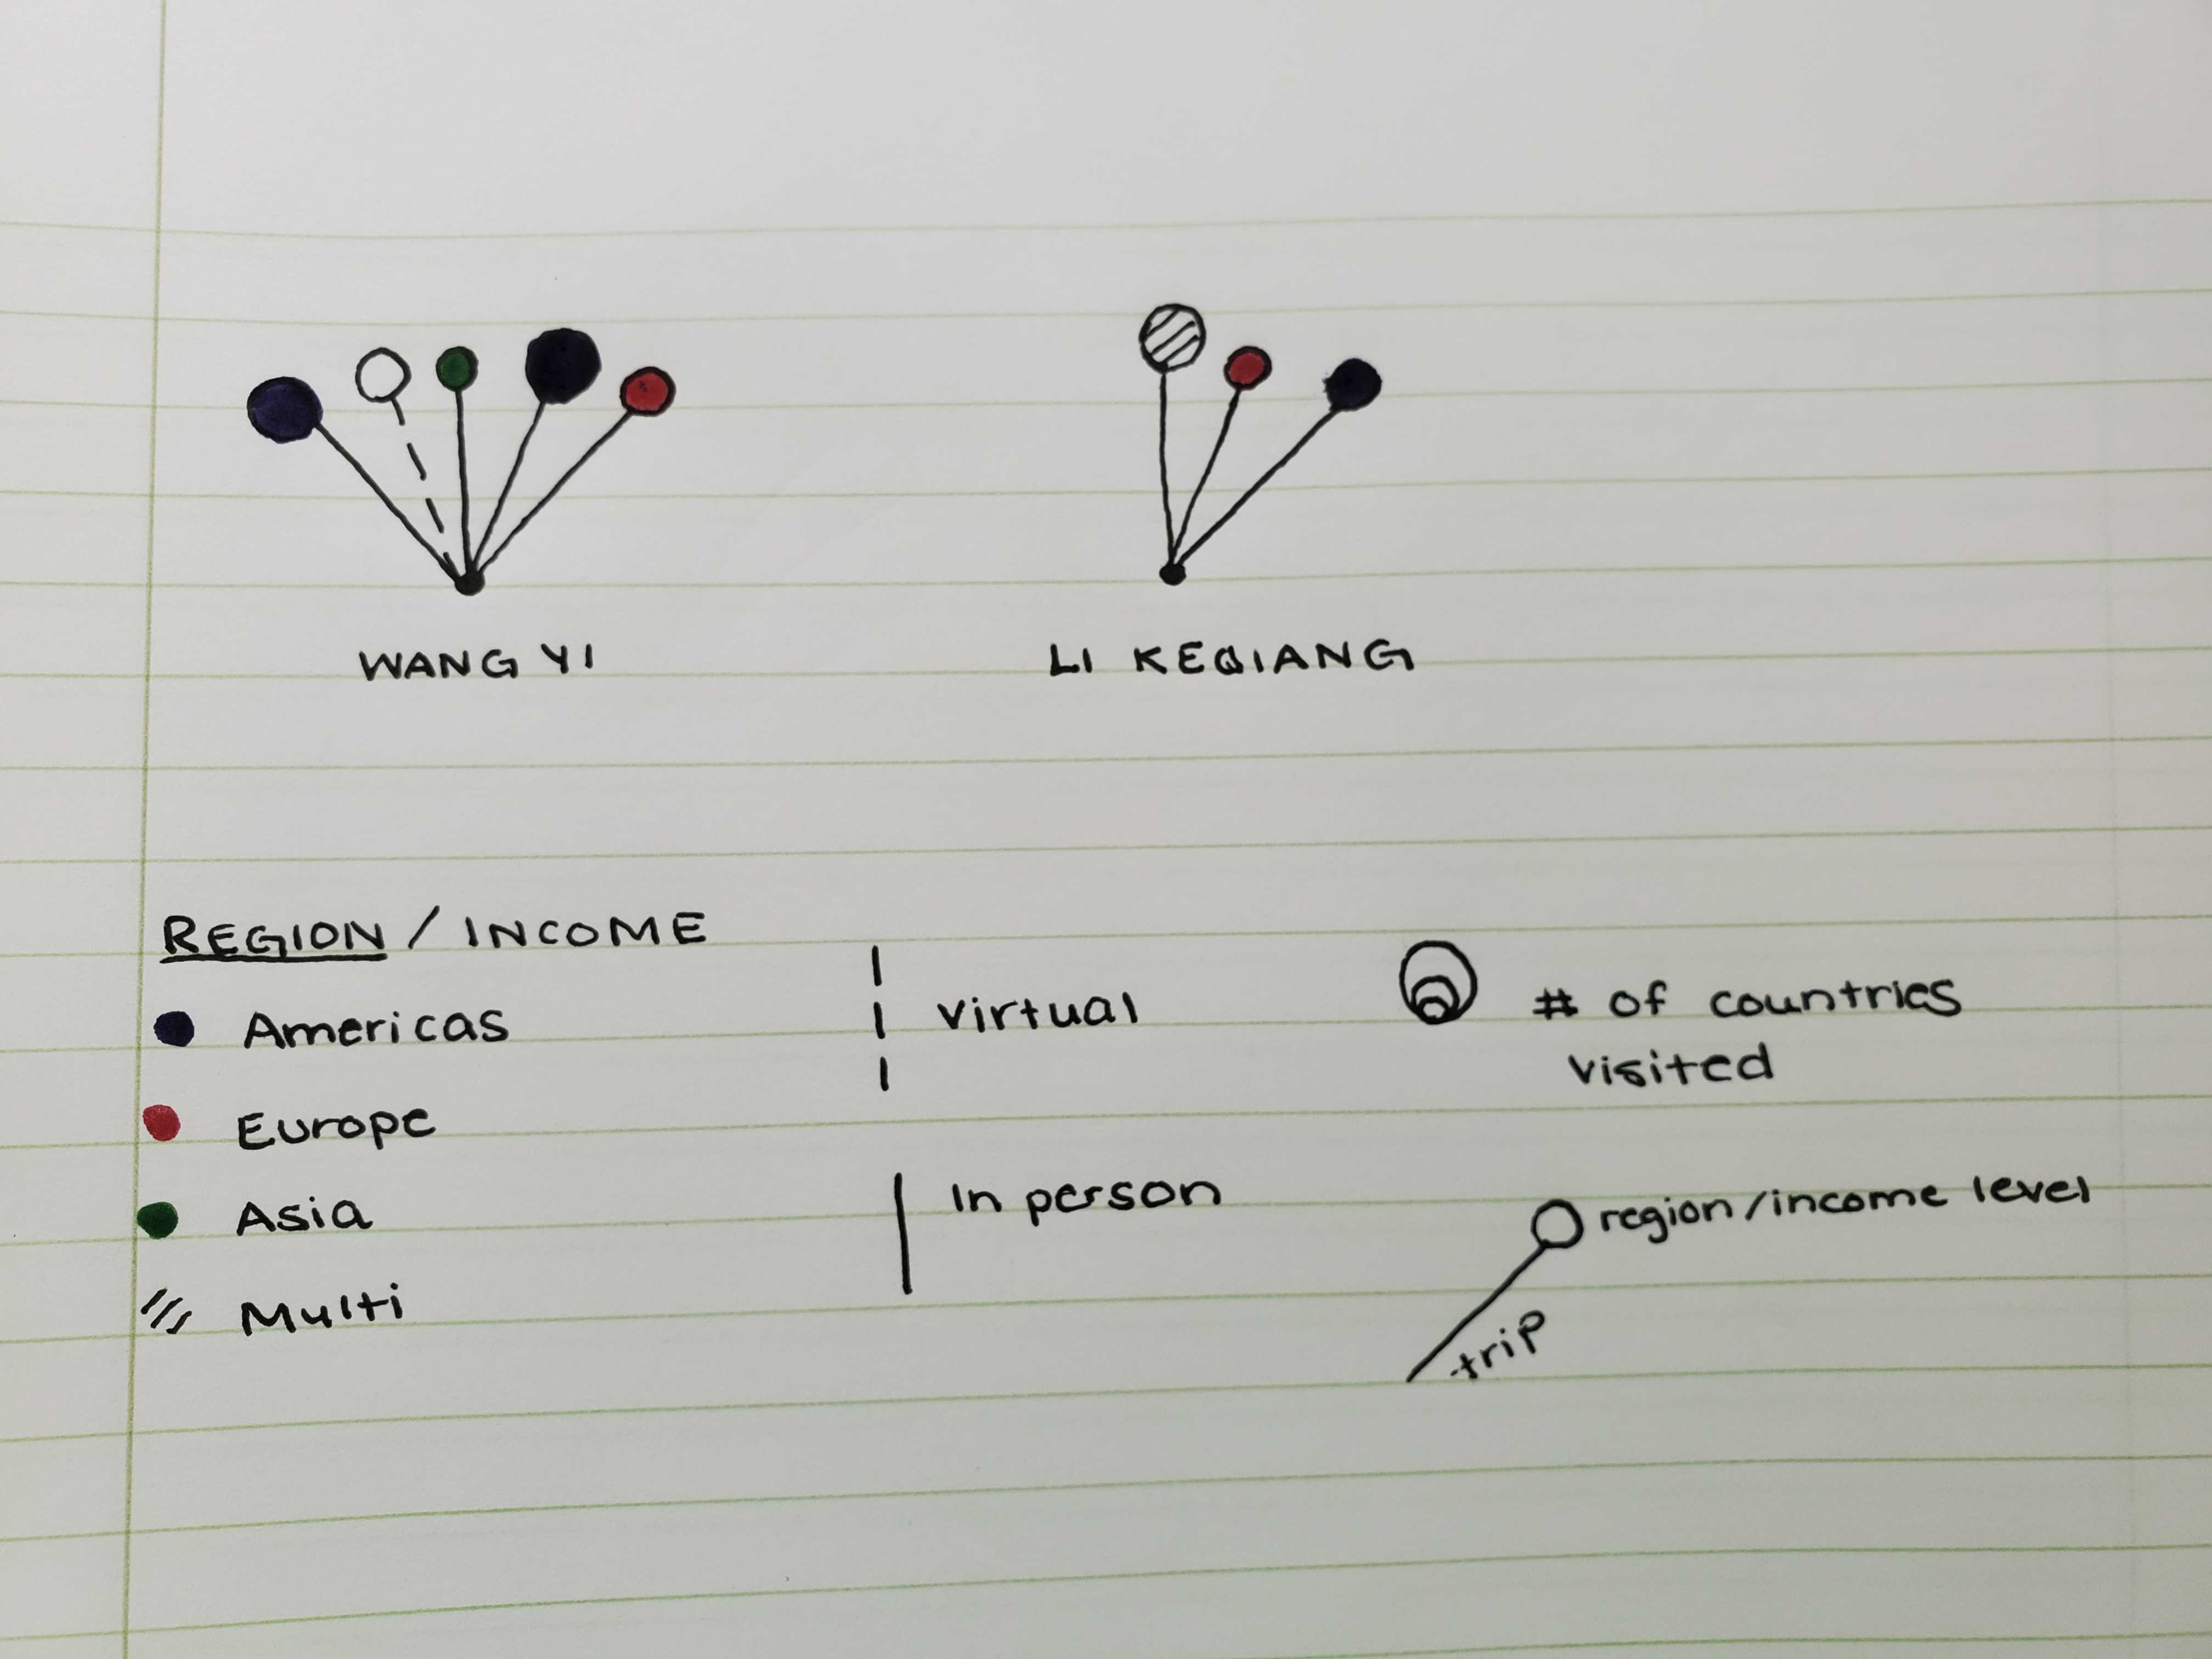 WANG YI
LI KEQIANG
REGION / INCOME
Americas
Europe
Asia
Multi
Virtual
In person
# of countries
visited
region/income level
trip